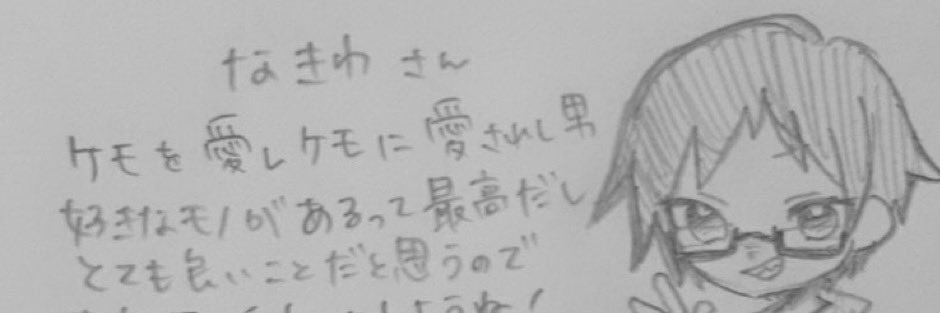 なきわ さん
ケモを愛しケモに愛されし男
好きなモノがあるって最高だし
とても良いことだと思うので